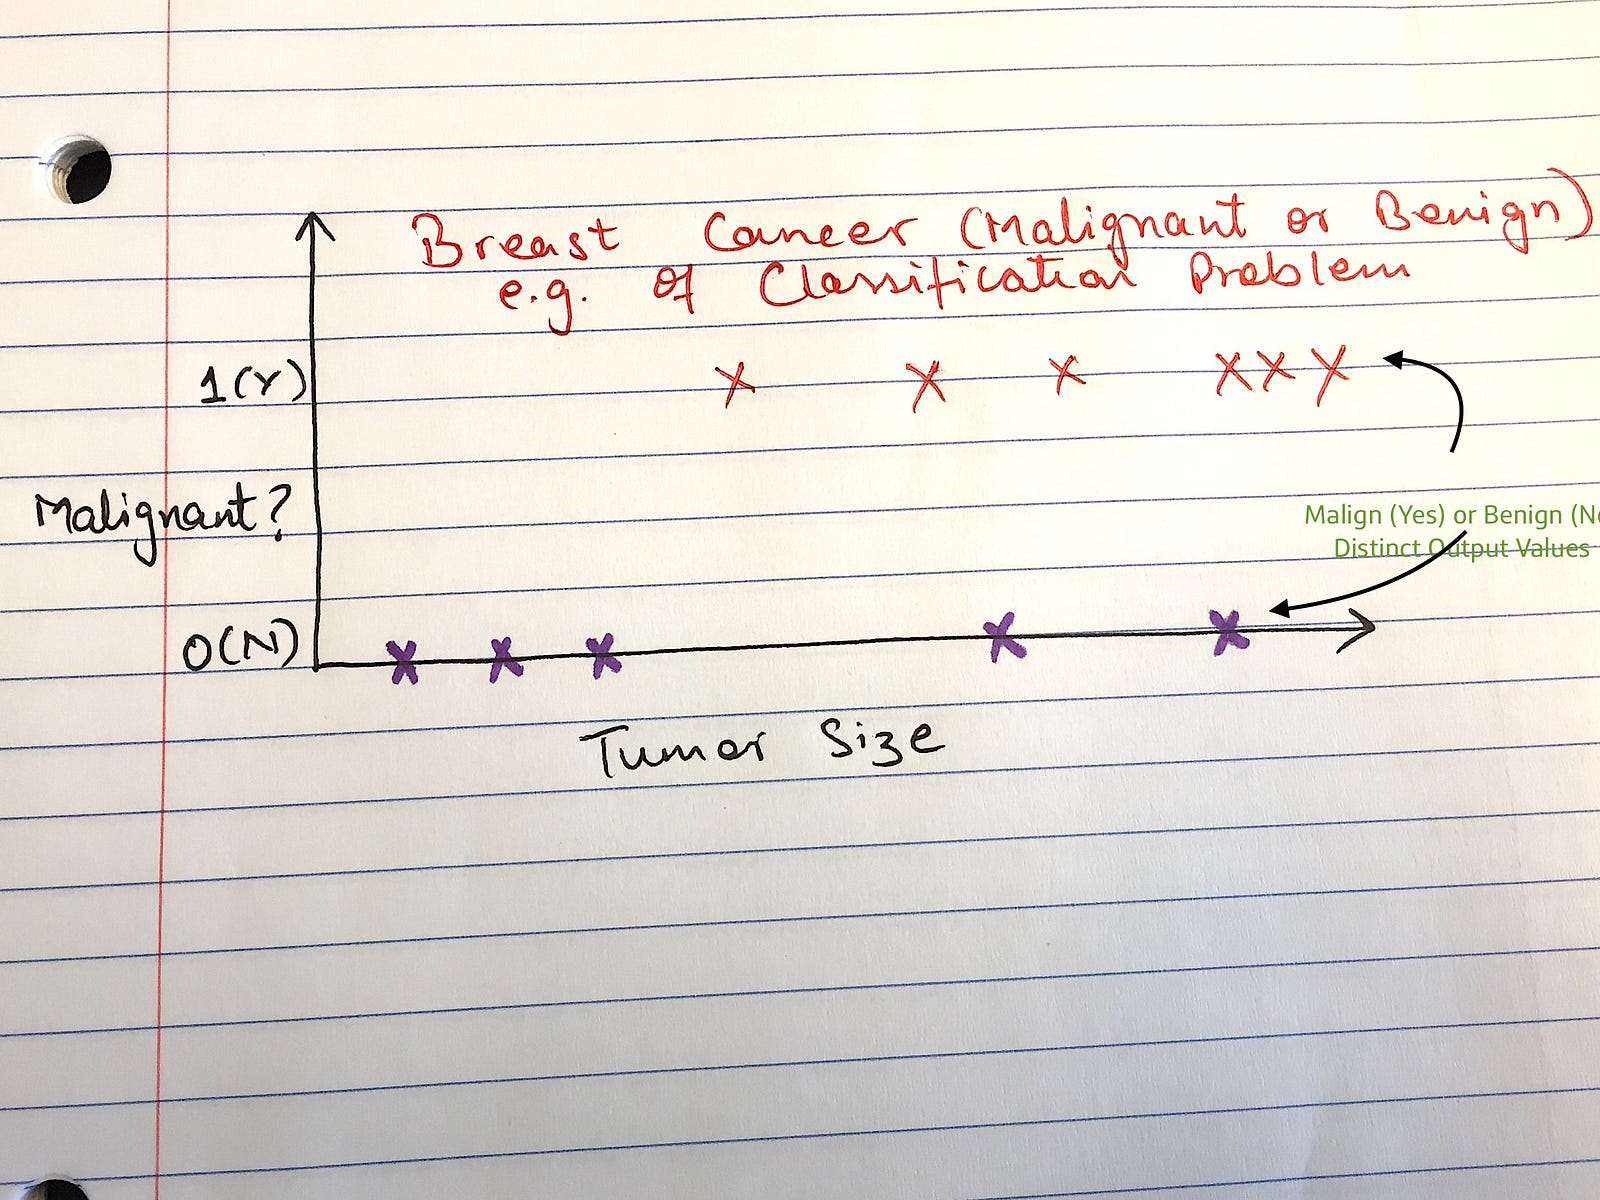 Breast Cancer (Malignant or Benign)
e.g. of Classification Problem
1(Y)
Malignant?
Malign (Yes) or Benign (No
Distinct Output Values
0(N)
Tumor Size